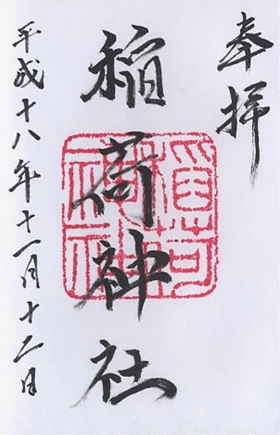 奉拝
稲荷神社
稲荷神社
平成十八年十一月十二日